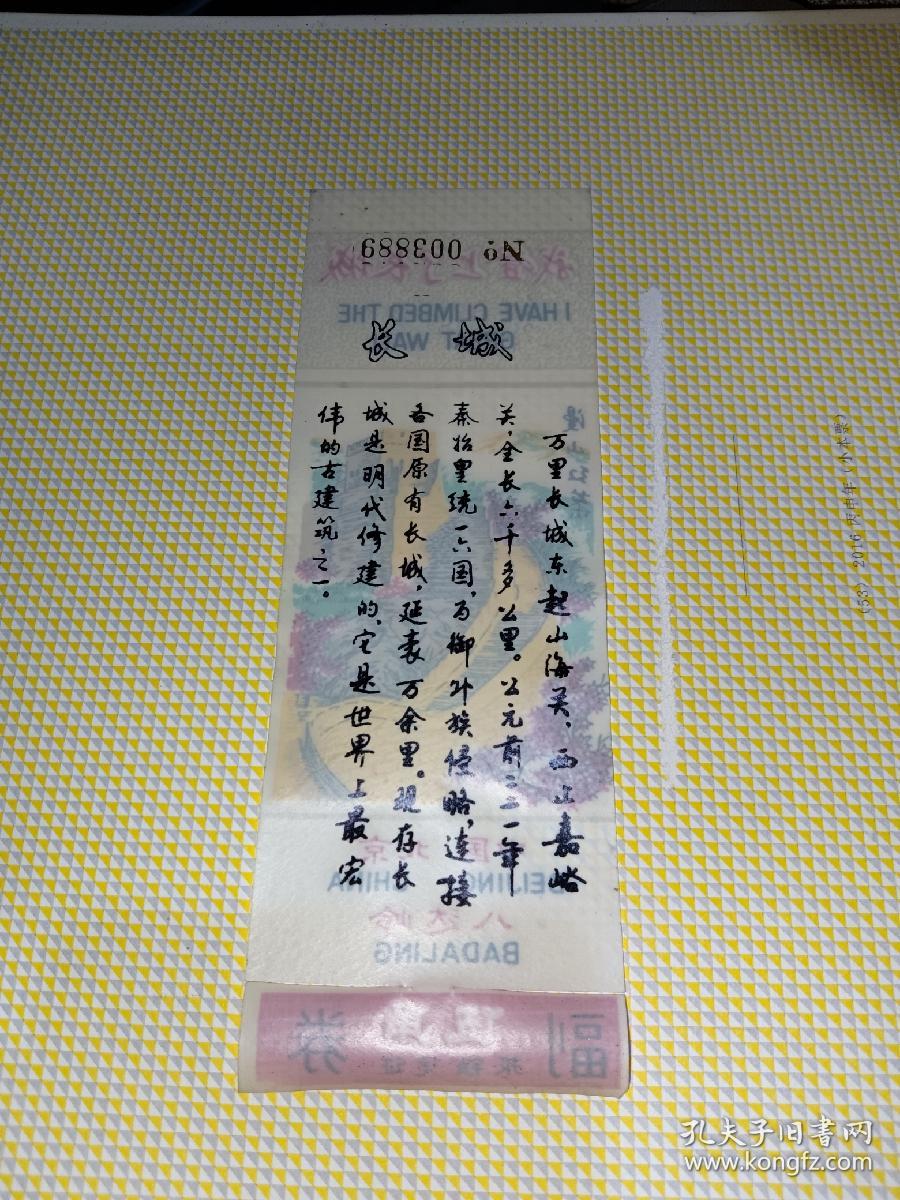 No 003889
我登上了长城
I HAVE CLIMBED THE
长城
万里长城东起山海关，西止嘉峪
关，全长六千多公里。公元前二二一年
秦始皇统一六国，为御外族侵略，连接
各国原有长城，延袤万余里。现存长
城是明代修建的，它是世界上最宏
伟的古建筑之一。
BEIJING CHINA
八达岭
BADALING
副券
(53) 2016 丙申年（小本票）
孔夫子旧书网
www.kongfz.com